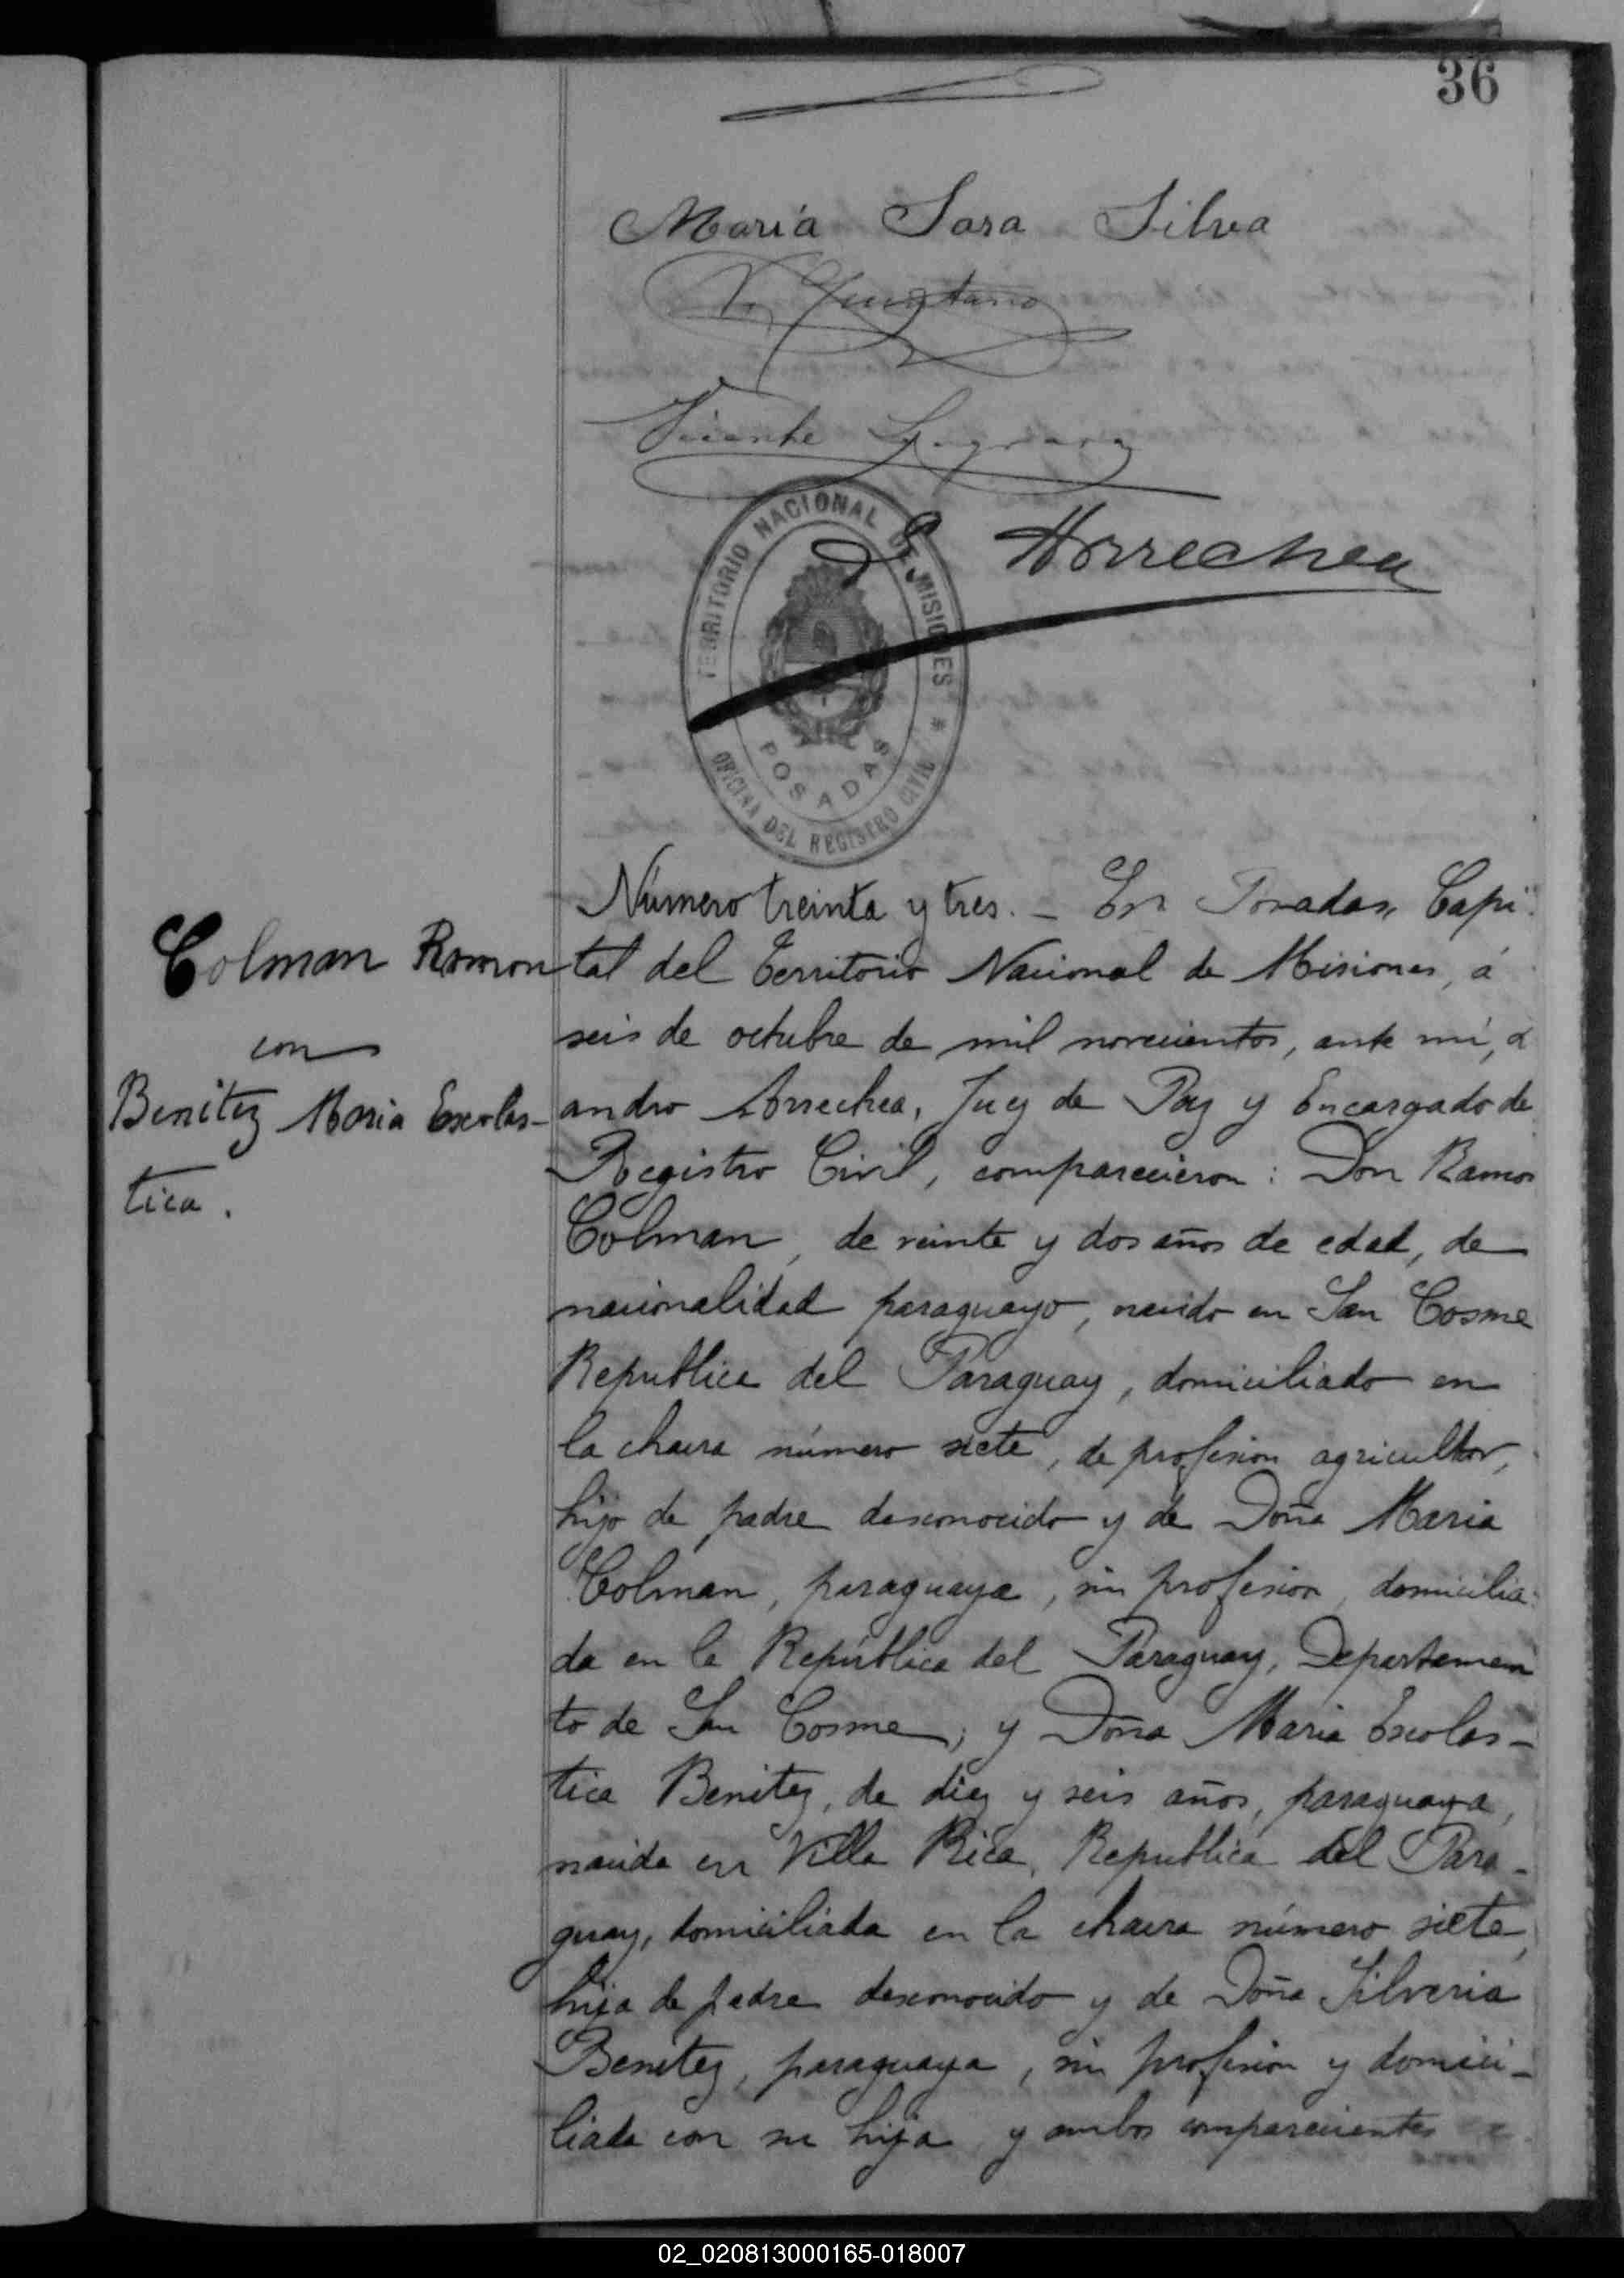 36
María Sara Silva
Vicente
TERRITORIO NACIONAL DE MISIONES
Arrechea
POSADAS
OFICINA DEL REGISTRO CIVIL
Colman Ramon
con
Benitez Maria Escolas-
tica.
Número treinta y tres. - En Posadas, Capi-
tal del Territorio Nacional de Misiones, á
seis de octubre de mil novecientos, ante mí,
andro Arrechea, Juez de Paz y Encargado de
Registro Civil, comparecieron: Don Ramon
Colman, de veinte y dos años de edad, de
nacionalidad paraguayo, nacido en San Cosme
Republica del Paraguay, domiciliado en
la chacra número siete, de profesion agricultor,
hijo de padre desconocido y de Doña Maria
Colman, paraguaya, sin profesion, domicilia-
da en la República del Paraguay, Departamen
to de San Cosme; y Doña Maria Escolas-
tica Benitez, de diez y seis años, paraguaya,
nacida en Villa Rica, Republica del Para-
guay, domiciliada en la chacra número siete,
hija de padre desconocido y de Doña Silveria
Benitez, paraguaya, sin profesion y domici-
liada con su hija y ambos comparecientes
02_020813000165-018007